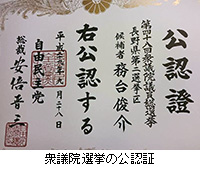 公認證
第四十八回衆議院議員総選挙
長野県第二選挙区
候補者 務台俊介
右公認する
平成二十九年九月二十八日
自由民主党
総裁 安倍晋三
衆議院選挙の公認証